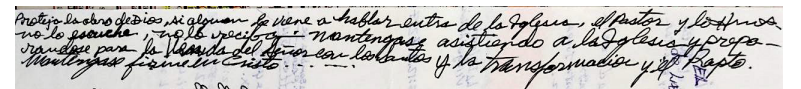 Proteja la obra de Dios, si alguien le viene a hablar entra de la Iglesia, el Pastor y los Hnos
no lo escuche, no lo reciba. Mantengase asistiendo a la Iglesia y prepa-
randose para la venida del Señor con los santos y la transformacion y el Rapto.
Mantengase firme en Cristo